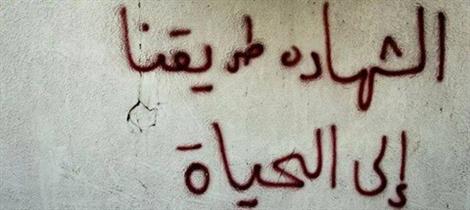 الشهاده طريقنا
إلى الحياة